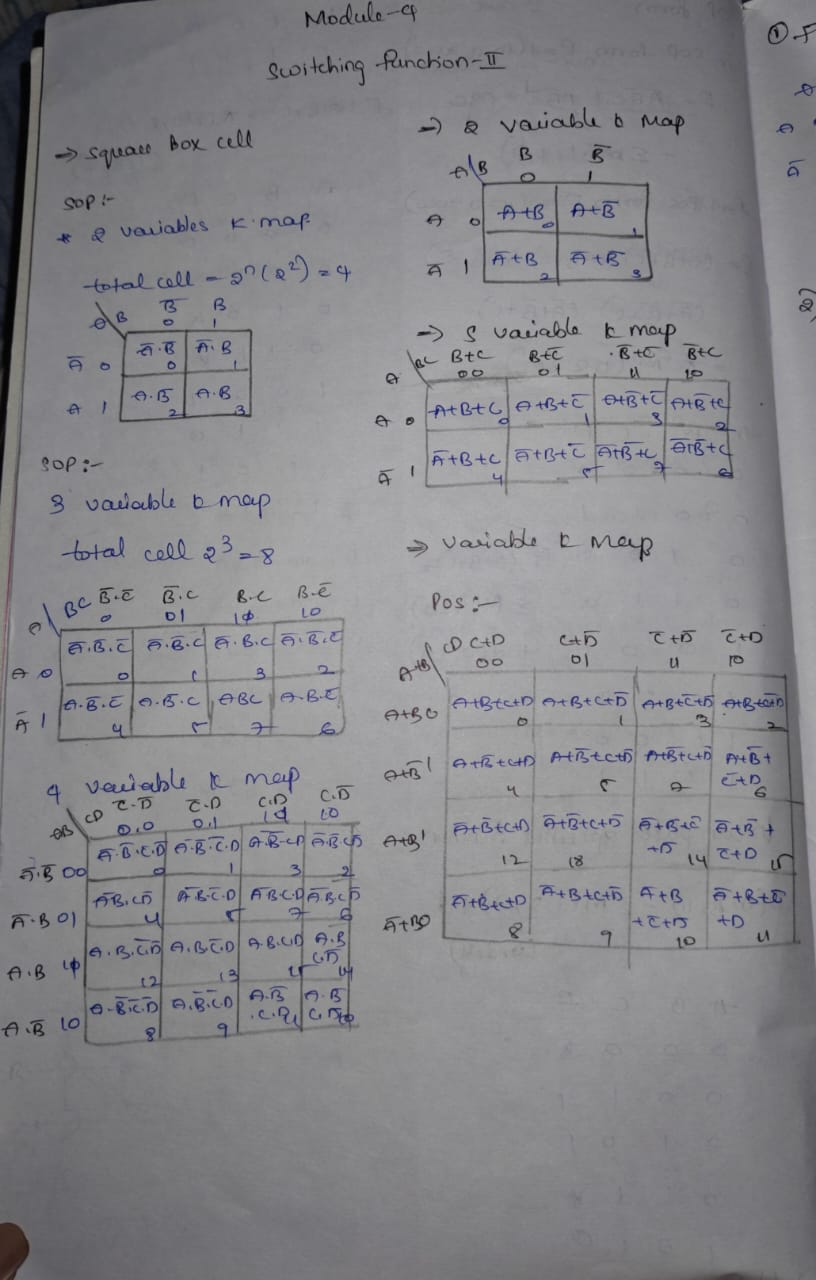 Module-4
Switching function-II
⇒ square Box cell
SOP:-
* 2 variables K-map
total cell = 2ⁿ (2²) = 4
A\B B̅ B
0 1
A̅ 0 A̅.B̅ 0 A̅.B 1
A 1 A.B̅ 2 A.B 3
SOP:-
3 variable k map
total cell 2³ = 8
A\BC B̅.C̅ B̅.C B.C B.C̅
0 01 10 10
A 0 A̅.B̅.C̅ 0 A̅.B̅.C 1 A̅.B.C 3 A̅.B.C̅ 2
A̅ 1 A.B̅.C̅ 4 A.B̅.C 5 ABC 7 A.B.C̅ 6
4 variable K map
AB\CD C̅.D̅ C̅.D C.D C.D̅
0.0 0.1 10
A̅.B̅ 00 A̅.B̅.C̅.D̅ 0 A̅.B̅.C̅.D 1 A̅.B̅.CD 3 A̅.B̅.CD̅ 2
A̅.B 01 4 5 7 6
A.B A.B.C̅.D̅ 12 A.B.C̅.D 13 A.B.C.D 15 A.B C.D̅ 14
A.B̅ 10 A.B̅.C̅.D̅ 8 A.B̅.C̅.D 9 A.B̅ .C.D A.B̅ C.D̅
⇒ 2 variable k Map
A\B B B̅
0 1
A 0 A+B 0 A+B̅ 1
A̅ 1 A̅+B 2 A̅+B̅ 3
⇒ 3 variable k map
A\BC B+C B+C̅ B̅+C̅ B̅+C
00 01 11 10
A 0 A+B+C 0 A+B+C̅ 1 A+B̅+C̅ 3 A+B̅+C 2
A̅ 1 A̅+B+C 4 A̅+B+C̅ 5 A̅+B̅+C 7 A̅+B̅+C 6
⇒ variable k Map
Pos:-
A+B\CD C+D C+D̅ C̅+D̅ C̅+D
00 01 11 10
A+B 0 A+B+C+D 0 A+B+C+D̅ 1 A+B+C̅+D̅ 3 A+B+C̅+D 2
A+B̅ 1 A+B̅+C+D 4 A+B̅+C+D̅ 5 A+B̅+C+D̅ 7 A+B̅+ C̅+D 6
A̅+B̅ 1 A̅+B̅+C+D 12 A̅+B̅+C+D̅ 13 A̅+B̅+C̅ +D̅ 14 A̅+B̅ + C̅+D 15
A̅+B 0 A̅+B+C+D 8 A̅+B+C+D̅ 9 A̅+B +C̅+D̅ 10 A̅+B+C̅ +D 11